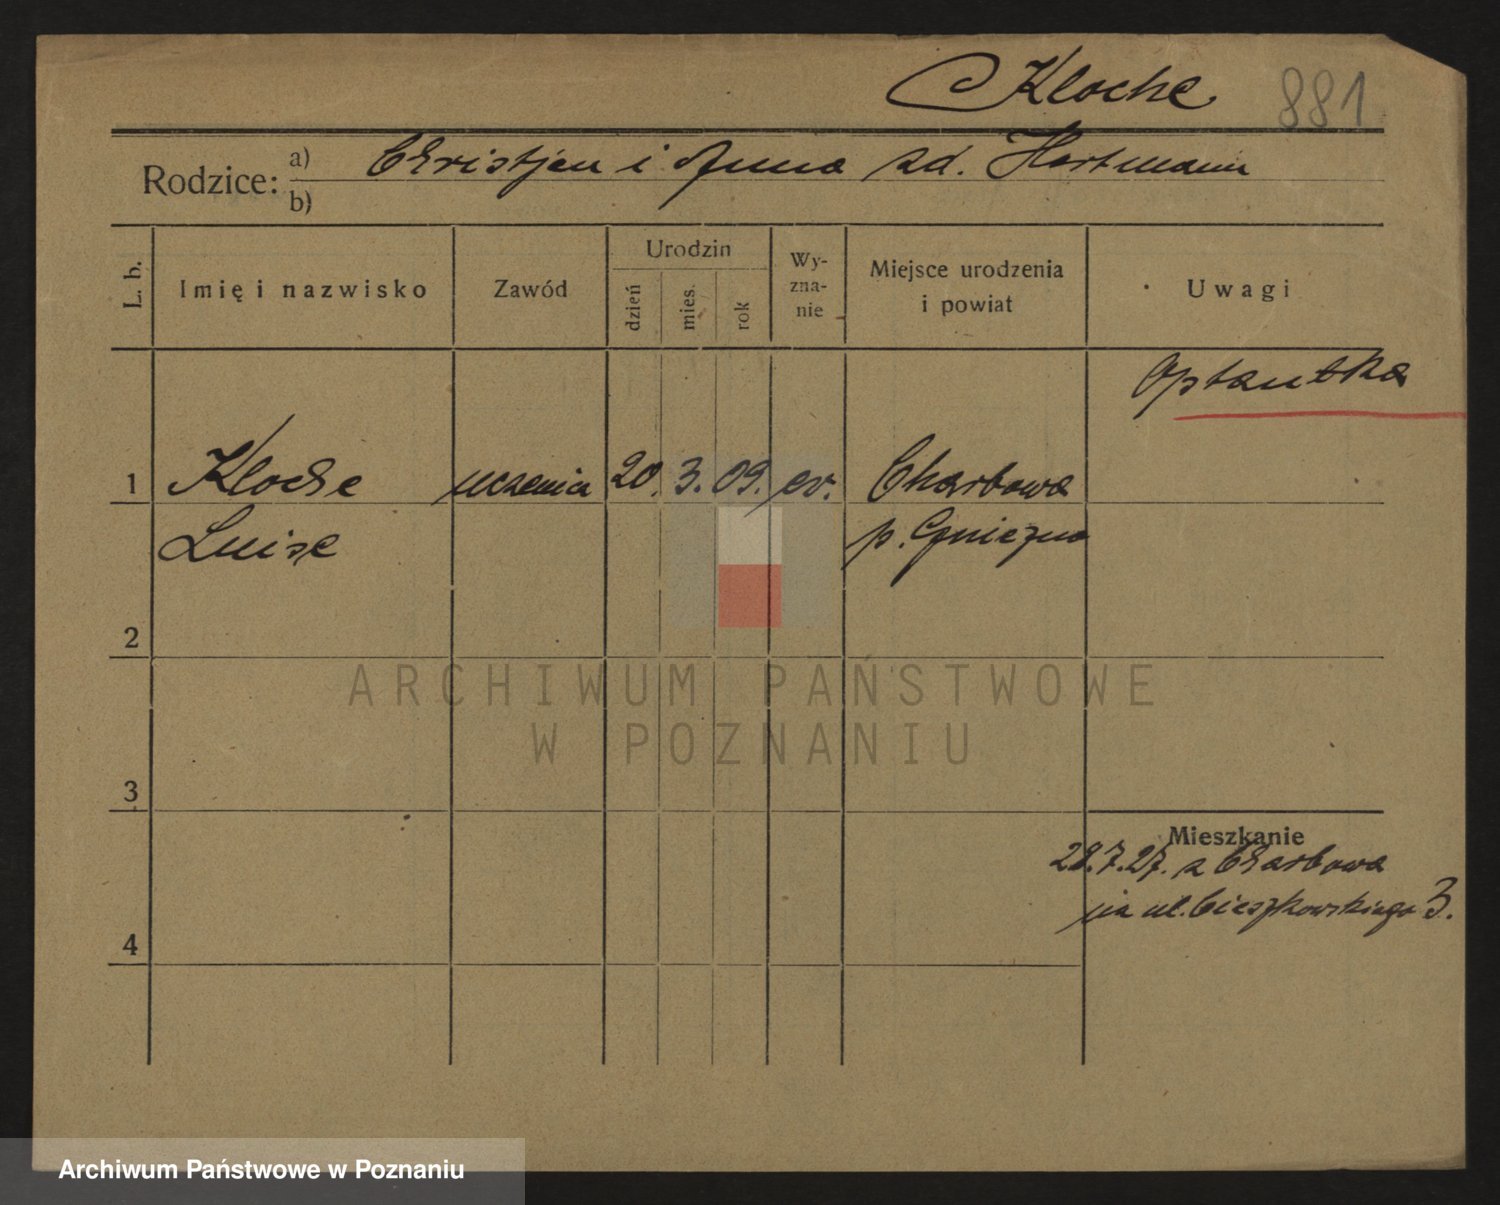 Klocke 881
Rodzice: a) Christjan i Anna zd. Hartmann
b)
L. b. Imię i nazwisko Zawód Urodzin dzień mies. rok Wy-zna-nie Miejsce urodzenia i powiat Uwagi
Optantka
1 Klocke uczenica 20. 3. 09. ev. Charbowo
Luise p. Gniezno
2
ARCHIWUM PAŃSTWOWE
W POZNANIU
3
Mieszkanie
28.7.27. z Charbowa
na ul. Cieszkowskiego 3.
4
Archiwum Państwowe w Poznaniu